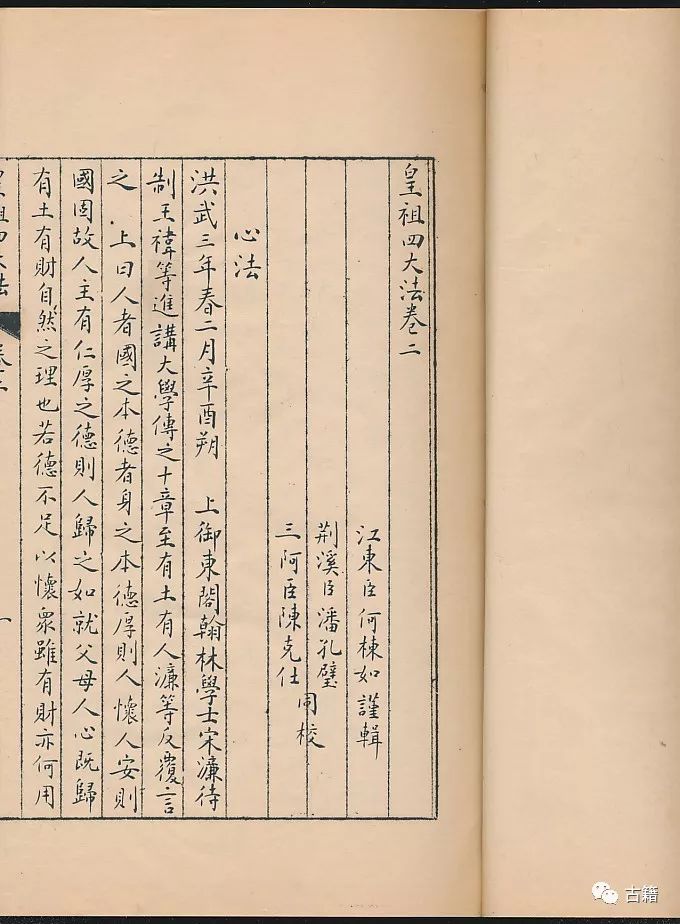 皇祖四大法卷二
江東臣何棟如謹輯
荆溪臣潘孔璧
同校
三阿臣陳克仕
心法
洪武三年春二月辛酉朔　上御東閣翰林學士宋濂待
制王禕等進講大學傳之十章至有土有人濂等反覆言
之　上曰人者國之本德者身之本德厚則人懷人安則
國固故人主有仁厚之德則人歸之如就父母人心既歸
有土有財自然之理也若德不足以懷衆雖有財亦何用
皇祖四大法
卷二
一
古籍